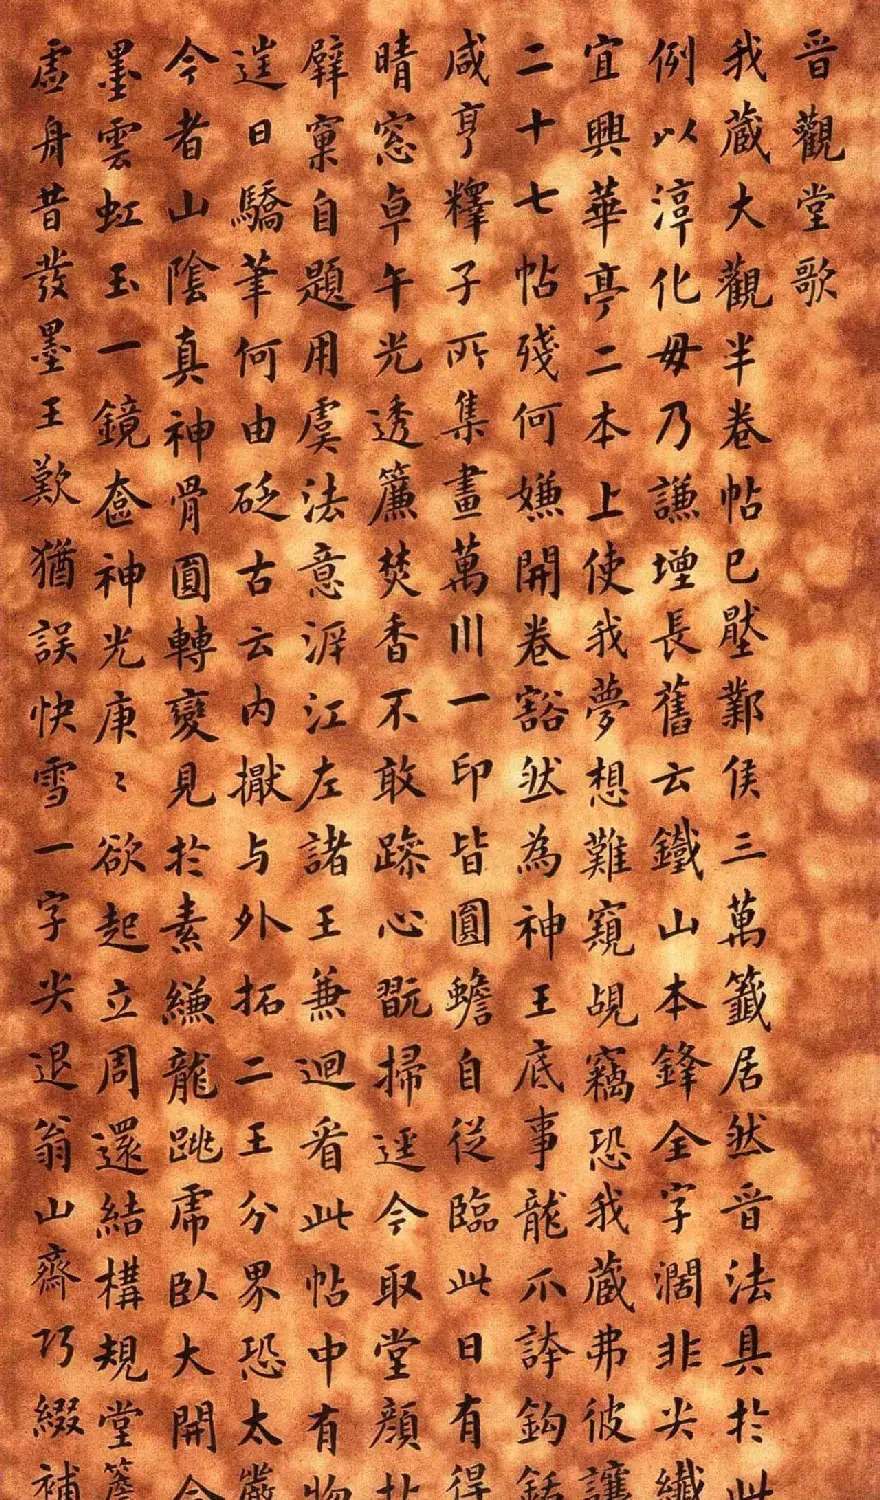 晉觀堂歌
我藏大觀半卷帖已壓鄴侯三萬籤居然晉法具於此
例以淳化毋乃謙增長舊云鐵山本鋒全字濶非尖纖
宜興華亭二本上使我夢想難窺覘竊恐我藏弗彼讓
二十七帖殘何嫌開卷豁然為神王底事龍爪誇鈎銛
咸亨釋子所集畫萬川一印皆圓蟾自從臨此日有得
晴窓卓午光透簾焚香不敢躁心翫掃逕今取堂顏
擘窠自題用虞法意涯江左諸王兼迴看此帖中有物
逞日驕筆何由砭古云內擫与外拓二王分界恐太嚴
今者山陰真神骨圓轉變見於素縑龍跳虎臥大開合
墨雲虹玉一鏡奩神光庚〻欲起立周還結構規堂簷
虛舟昔發墨王歎猶誤快雪一字尖退翁山齋巧綴補